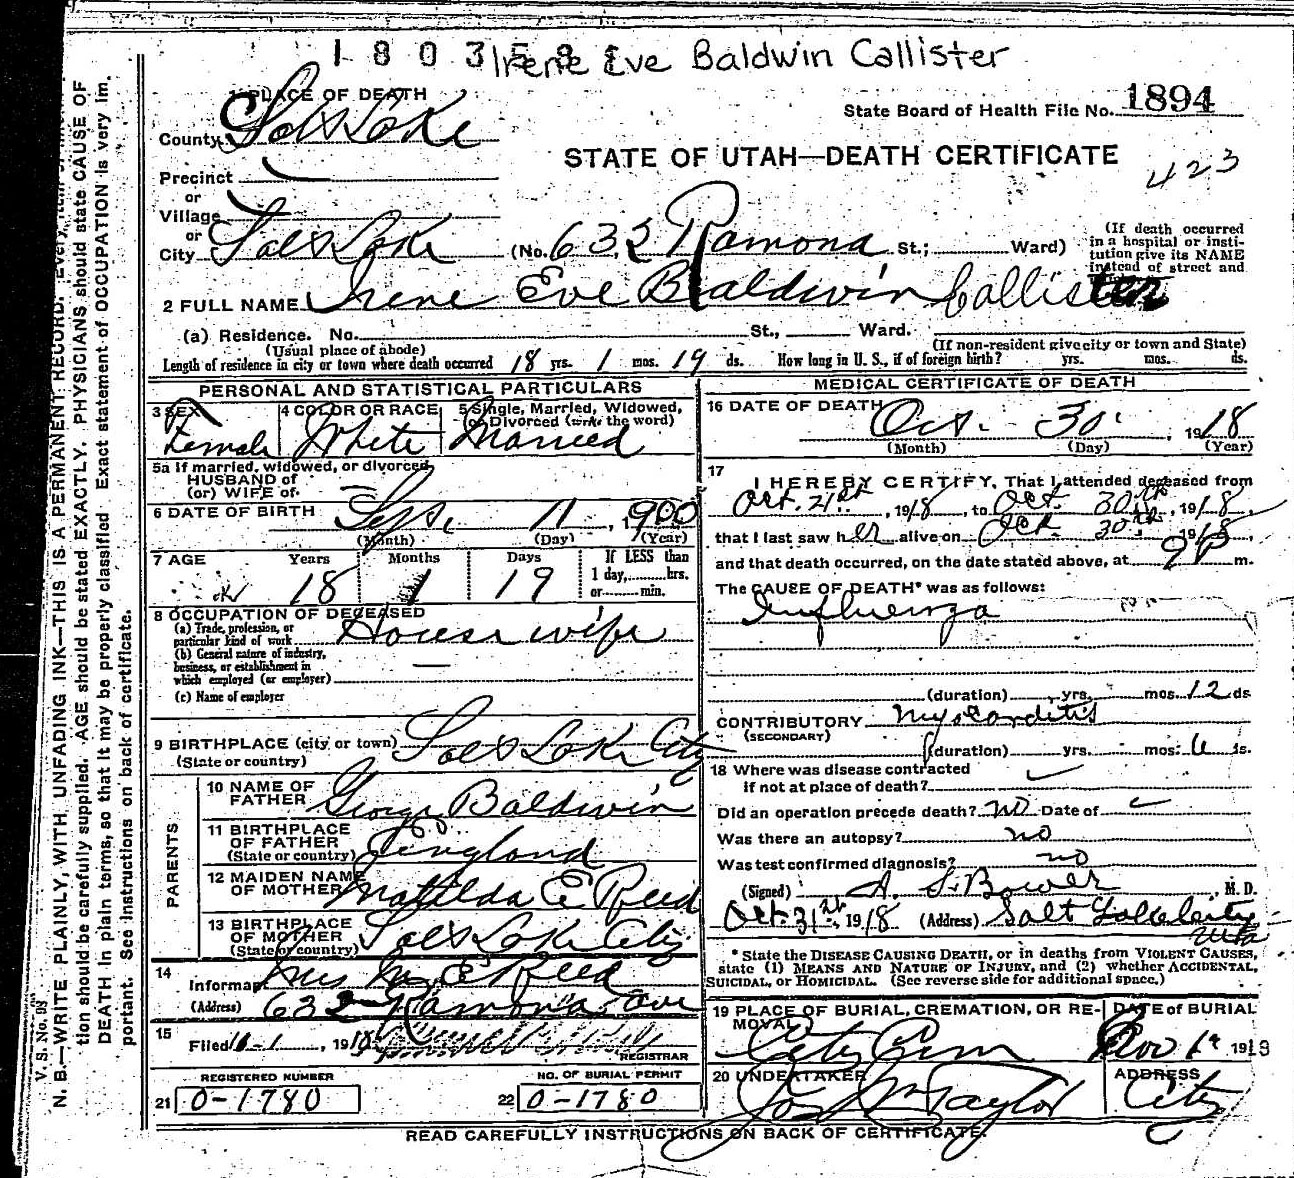 1803581
Irene Eve Baldwin Callister
1 PLACE OF DEATH
State Board of Health File No. 1894
County Salt Lake
STATE OF UTAH—DEATH CERTIFICATE
423
Precinct
or
Village
or
City Salt Lake (No. 632 Ramona St.; Ward)
(If death occurred
in a hospital or insti-
tution give its NAME
instead of street and
2 FULL NAME Irene Eve Baldwin Callister
(a) Residence. No. St., Ward.
(Usual place of abode)
(If non-resident give city or town and State)
Length of residence in city or town where death occurred 18 yrs. 1 mos. 19 ds. How long in U. S., if of foreign birth? yrs. mos. ds.
PERSONAL AND STATISTICAL PARTICULARS
3 SEX
Female
4 COLOR OR RACE
White
5 Single, Married, Widowed,
or Divorced (write the word)
Married
5a If married, widowed, or divorced
HUSBAND of
(or) WIFE of
6 DATE OF BIRTH Sept. 11, 1900
(Month) (Day) (Year)
7 AGE Years Months Days
If LESS than
1 day, hrs.
or min.
18 1 19
8 OCCUPATION OF DECEASED
(a) Trade, profession, or
particular kind of work House wife
(b) General nature of industry,
business, or establishment in
which employed (or employer) —
(c) Name of employer
9 BIRTHPLACE (city or town) Salt Lake City
(State or country)
PARENTS
10 NAME OF
FATHER George Baldwin
11 BIRTHPLACE
OF FATHER
(State or country) England
12 MAIDEN NAME
OF MOTHER Matilda E Reed
13 BIRTHPLACE
OF MOTHER
(State or country) Salt Lake City
14
Informant Mrs M. E Reed
(Address) 632 Ramona Ave
15
Filed 11-1, 1918
REGISTRAR
REGISTERED NUMBER
21 0-1780
NO. OF BURIAL PERMIT
22 0-1780
MEDICAL CERTIFICATE OF DEATH
16 DATE OF DEATH
Oct. 30, 1918
(Month) (Day) (Year)
17
I HEREBY CERTIFY, That I attended deceased from
Oct. 21st, 1918, to Oct. 30th, 1918,
that I last saw her alive on Oct. 30th, 1918,
and that death occurred, on the date stated above, at 9 P m.
The CAUSE OF DEATH* was as follows:
Influenza
(duration) yrs. mos. 12 ds
CONTRIBUTORY Myocarditis
(SECONDARY)
(duration) yrs. mos. 6 ds.
18 Where was disease contracted
if not at place of death?
Did an operation precede death? no Date of
Was there an autopsy? no
Was test confirmed diagnosis? no
(Signed) A. S. Bower, M. D.
Oct. 31st, 1918 (Address) Salt Lake City
Utah
* State the DISEASE CAUSING DEATH, or in deaths from VIOLENT CAUSES,
state (1) MEANS AND NATURE OF INJURY, and (2) whether ACCIDENTAL,
SUICIDAL, or HOMICIDAL. (See reverse side for additional space.)
19 PLACE OF BURIAL, CREMATION, OR RE-
MOVAL
City Cem
DATE of BURIAL
Nov 1st 1918
20 UNDERTAKER
Jos Wm Taylor
ADDRESS
City
READ CAREFULLY INSTRUCTIONS ON BACK OF CERTIFICATE.
V. S. No. 98
N. B.—WRITE PLAINLY, WITH UNFADING INK—THIS IS A PERMANENT RECORD. Every item of
tion should be carefully supplied. AGE should be stated EXACTLY. PHYSICIANS should state CAUSE OF
DEATH in plain terms, so that it may be properly classified. Exact statement of OCCUPATION is very im.
portant. See instructions on back of certificate.